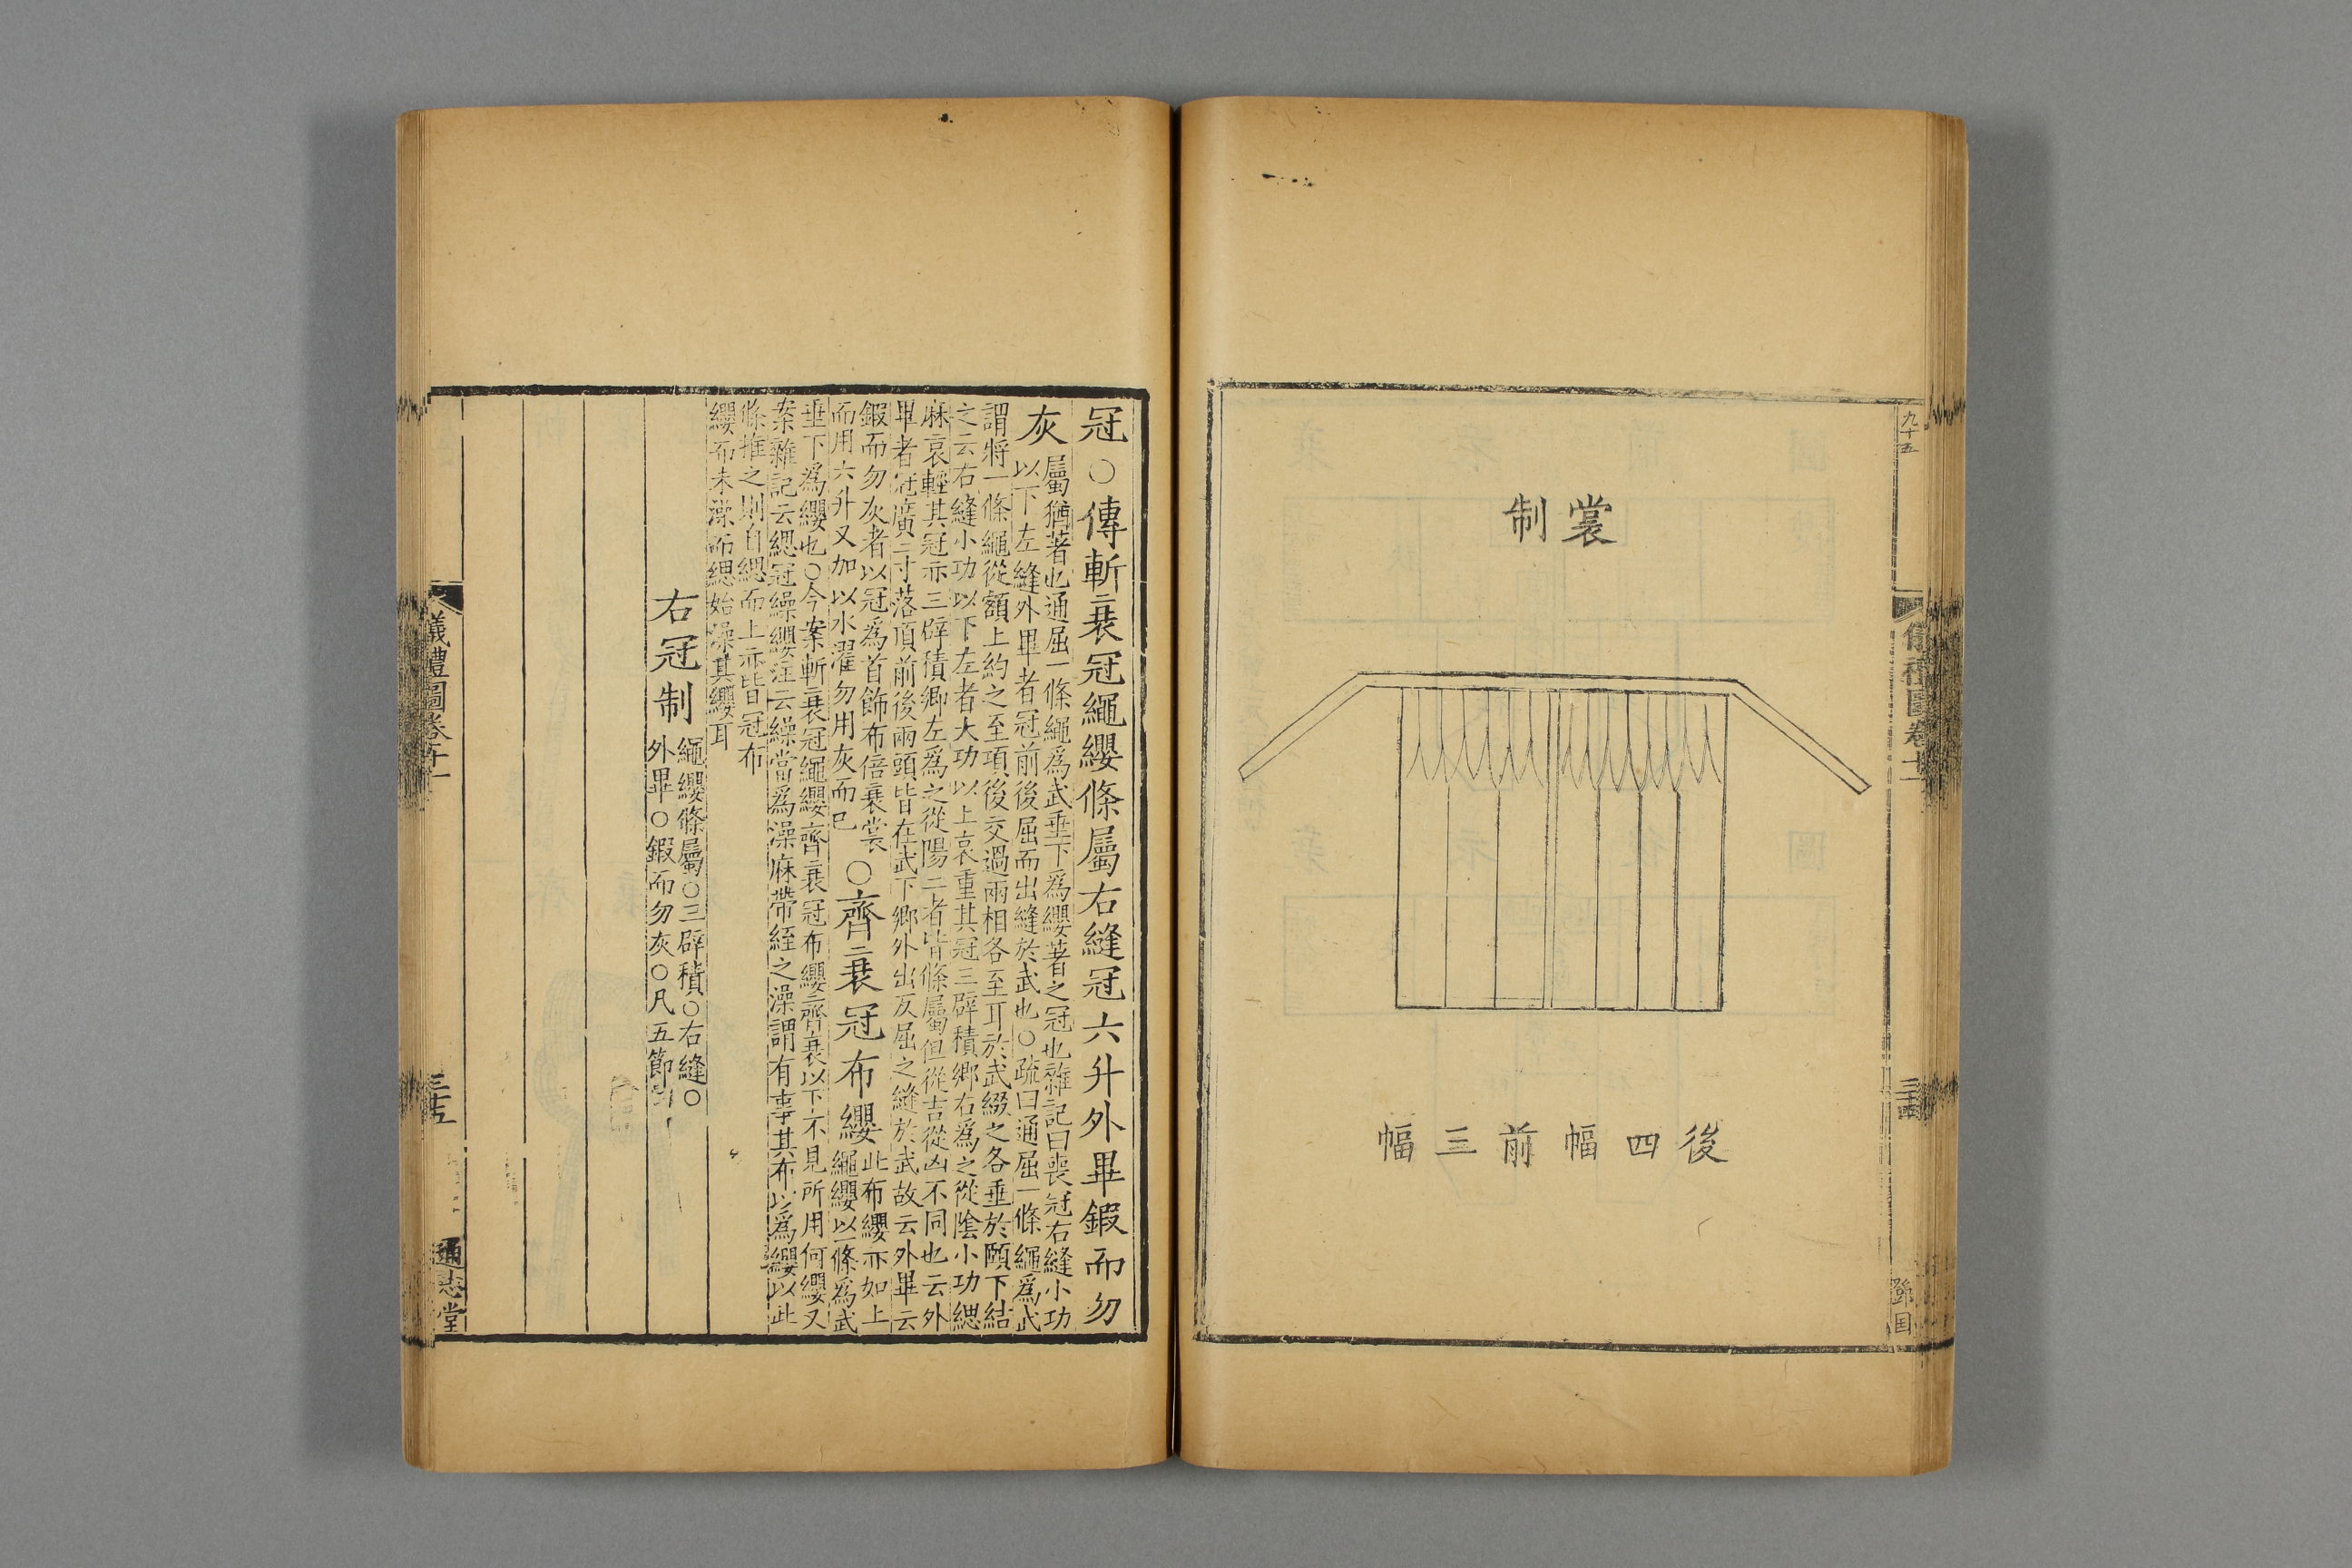 九十五
儀禮圖卷十一
三十四
鄧国
裳制
後四幅前三幅
冠○傳斬衰冠繩纓條屬右縫冠六升外畢鍜而勿
灰
屬猶著也通屈一條繩為武垂下為纓著之冠也雜記曰喪冠右縫小功
以下左縫外畢者冠前後屈而出縫於武也○疏曰通屈一條繩為武
謂將一條繩從額上約之至項後交過兩相各至耳於武綴之各垂於頤下結
之云右縫小功以下左者大功以上哀重其冠三辟積鄉右為之從陰小功緦
麻哀輕其冠亦三辟積鄉左為之從陽二者皆條屬但從吉從凶不同也云外
畢者冠廣二寸落頂前後兩頭皆在武下鄉外出反屈之縫於武故云外畢云
鍜而勿灰者以冠為首飾布倍衰裳
而用六升又加以水濯勿用灰而已
○齊衰冠布纓
此布纓亦如上
繩纓以一條為武
垂下為纓也○今案斬衰冠繩纓齊衰冠布纓齊衰以下不見所用何纓又
案雜記云緦冠繰纓注云繰當為澡麻帶絰之澡謂有事其布以為纓以此
條推之則自緦而上亦皆冠布
纓而未澡而緦始澡其纓耳
右冠制
繩纓條屬○三辟積○右縫○
外畢○鍜而勿灰○尺五節
儀禮圖卷十一
三十五
通志堂